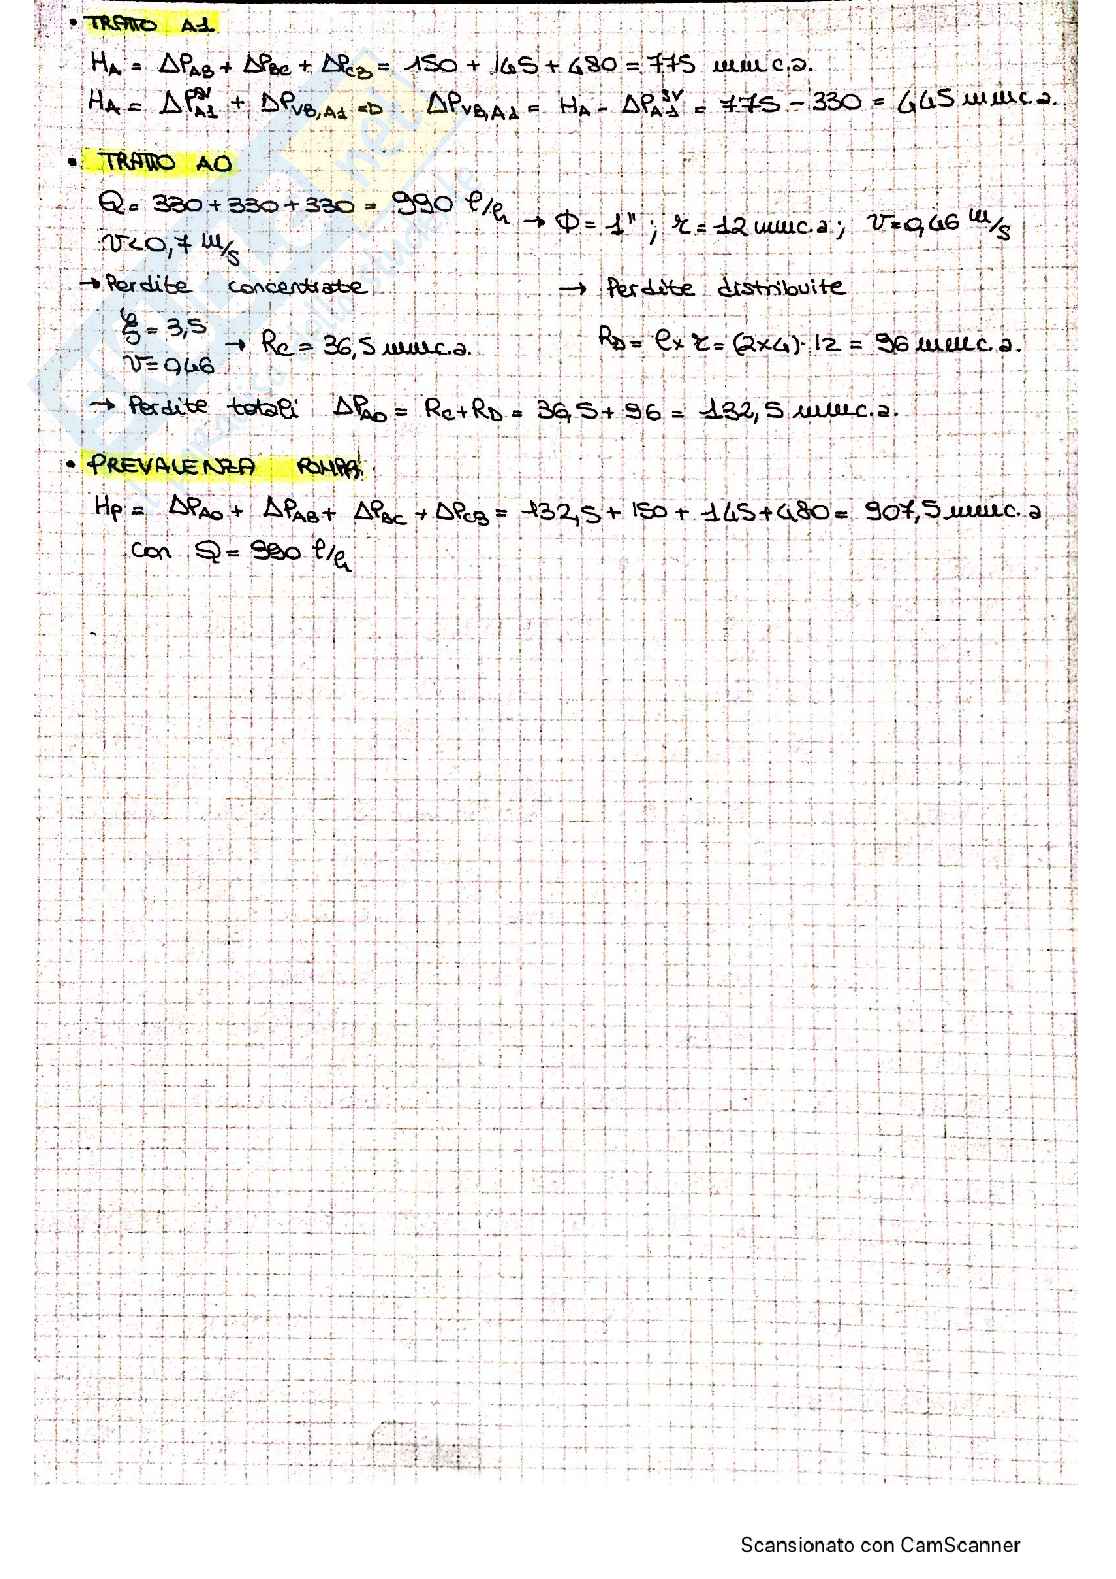 • TRATTO A1
HA = ΔPAB + ΔPBC + ΔPCB = 150 + 145 + 480 = 775 mmc.a.
HA = ΔPA1^SV + ΔPVB,A1 => ΔPVB,A1 = HA - ΔPA1^SV = 775 - 330 = 445 mmc.a.
• TRATTO AO
Q = 330 + 330 + 330 = 990 l/h → Φ = 1"; r = 12 mmc.a; v = 0,46 m/s
v < 0,7 m/s
→ Perdite concentrate → Perdite distribuite
ξ = 3,5
v = 0,46 → RC = 36,5 mmc.a. RD = l x r = (2x4)·12 = 96 mmc.a.
→ Perdite totali ΔPAO = RC + RD = 36,5 + 96 = 132,5 mmc.a.
• PREVALENZA POMPA:
HP = ΔPAO + ΔPAB + ΔPBC + ΔPCB = 132,5 + 150 + 145 + 480 = 907,5 mmc.a
con Q = 990 l/h
Scansionato con CamScanner